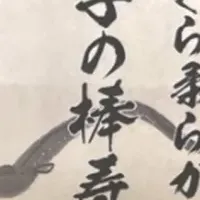 くら柔らか
子の棒寿